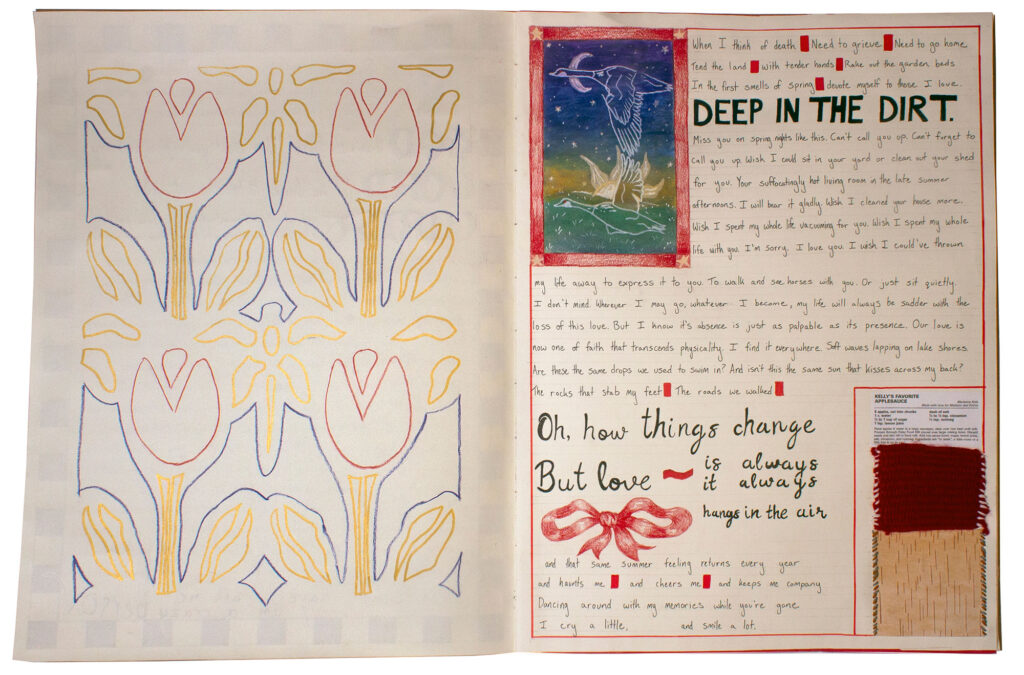 When I think of death Need to grieve Need to go home
Tend the land with tender hands Rake out the garden beds
In the first smells of spring devote myself to those I love.
DEEP IN THE DIRT.
Miss you on spring nights like this. Can't call you up. Can't forget to
call you up. Wish I could sit in your yard or clean out your shed
for you. Your suffocatingly hot living room in the late summer
afternoons. I will bear it gladly. Wish I cleaned your house more.
Wish I spent my whole life vacuuming for you. Wish I spent my whole
life with you. I'm sorry. I love you. I wish I could've thrown
my life away to express it to you. To walk and see horses with you. Or just sit quietly.
I don't mind. Wherever I may go, whatever I become, my life will always be sadder with the
loss of this love. But I know it's absence is just as palpable as its presence. Our love is
now one of faith that transcends physicality. I find it everywhere. Soft waves lapping on lake shores.
Are these the same drops we used to swim in? And isn't this the same sun that kisses across my back?
The rocks that stab my feet The roads we walked
Oh, how things change
But love is always
it always
hangs in the air
and that same summer feeling returns every year
and haunts me and cheers me and keeps me company
Dancing around with my memories while you're gone
I cry a little, and smile a lot.
KELLY'S FAVORITE
APPLESAUCE